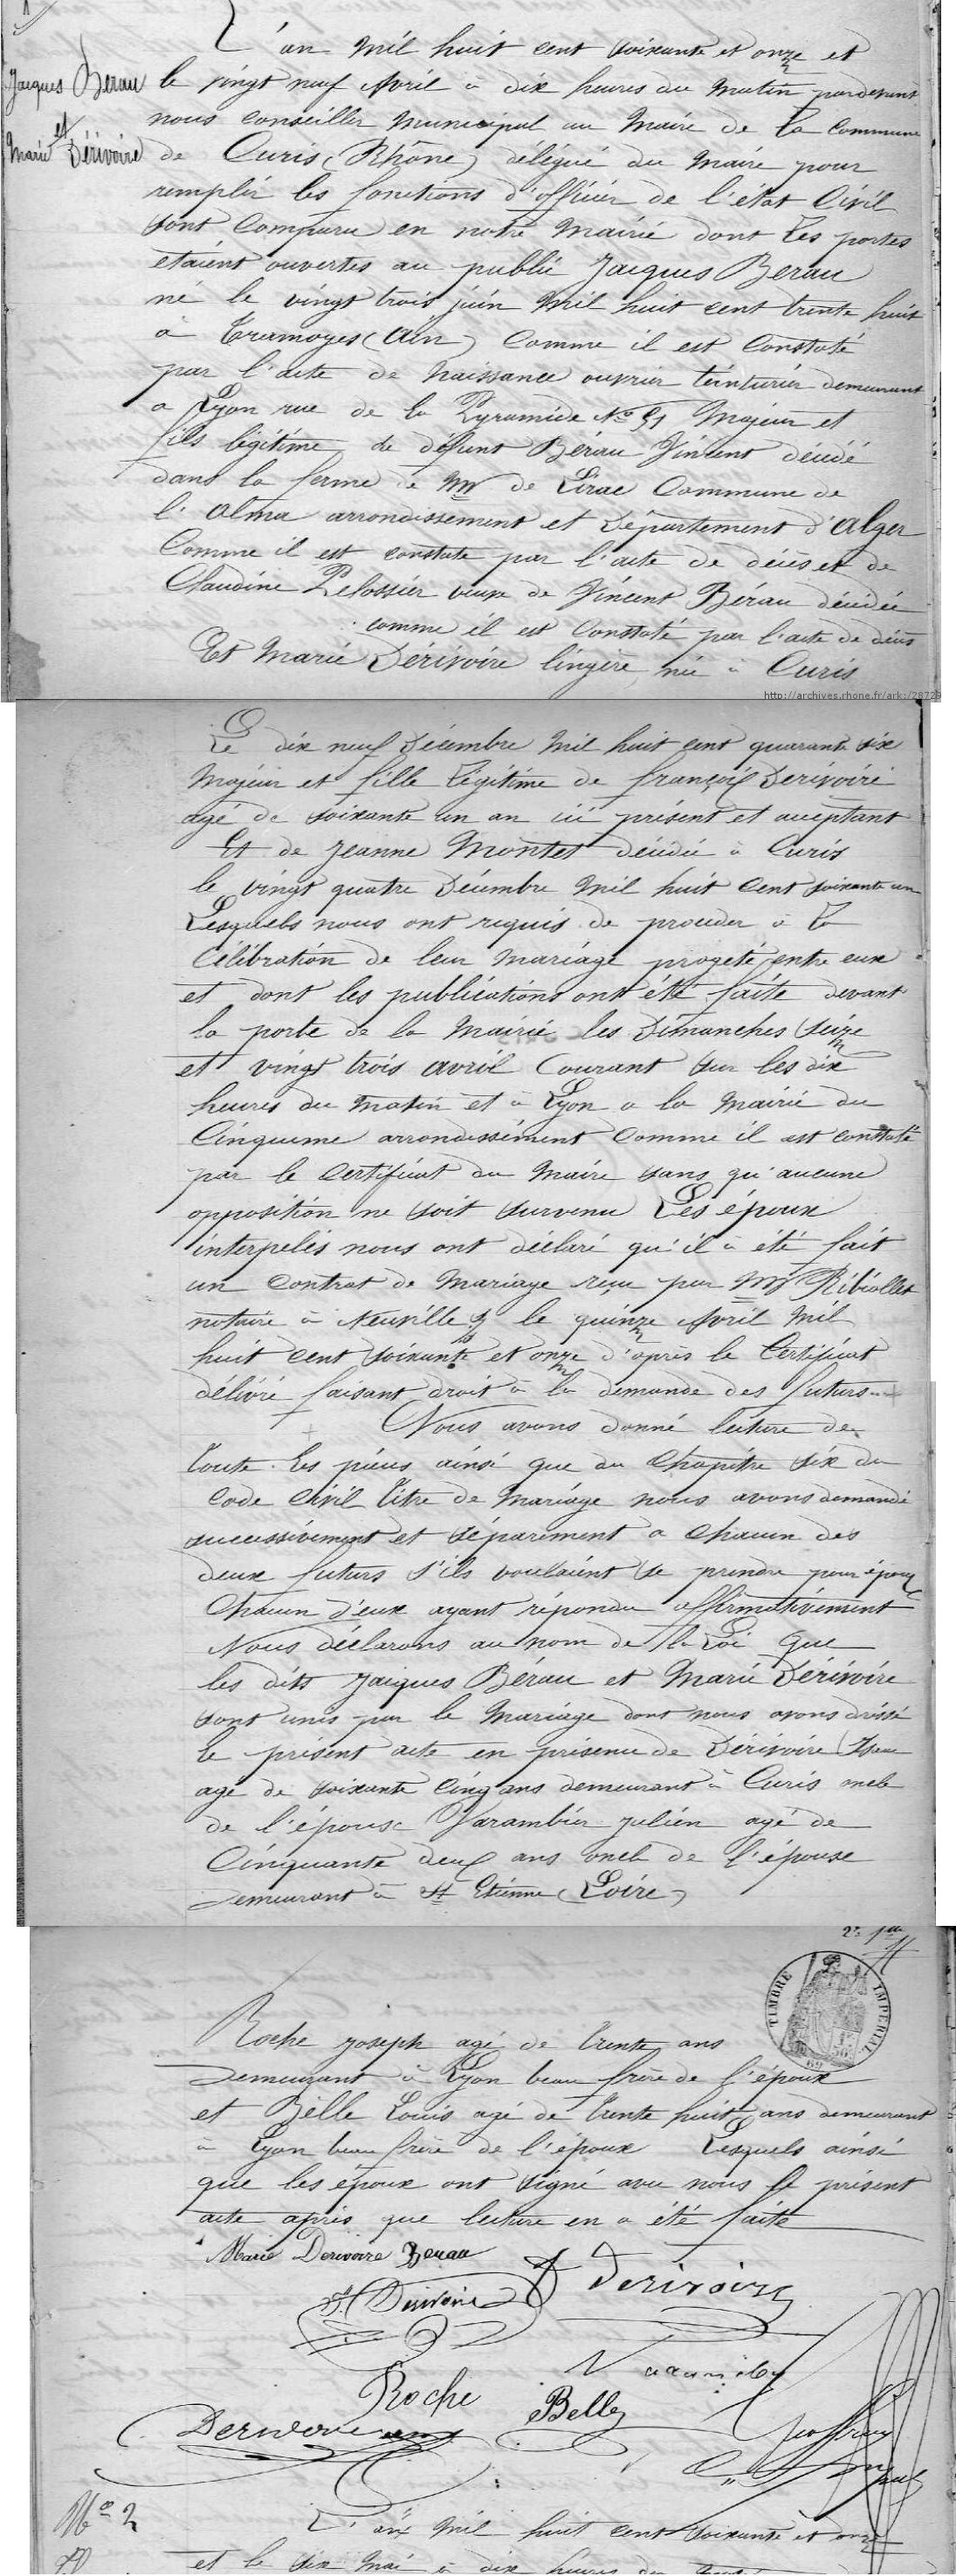 Jacques Berau
et
Marie Dérivoire
L'an mil huit cent soixante et onze et
le vingt neuf Avril à dix heures du Matin pardevant
nous conseiller Municipal au Maire de La commune
de Curis (Rhône) délégué du Maire pour
remplir les fonctions d'officier de l'état Civil
sont comparu en notre Mairie dont Les portes
etaient ouvertes au public Jacques Berau
né le vingt trois juin Mil huit cent trente huit
à Tramoyes (Ain) Comme il est Constaté
par l'acte de Naissance ouvrier teinturier demeurant
a Lyon rue de la Pyramide No 51 Majeur et
fils légitime de défunt Bérau Vincent décédé
dans la ferme de Mr de Lirac Commune de
l'Alma arrondissement et Département d'Alger
Comme il est constaté par l'acte de décès et de
Claudine Pelossier veuve de Vincent Bérau décédée
comme il est Constaté par l'acte de décès
Et Marie Dérivoire lingère née à Curis
http://archives.rhone.fr/ark:/28729
Le dix neuf Décembre Mil huit cent quarante six
Majeur et fille Légitime de françois Derivoire
agé de soixante un an ici présent et acceptant
Et de Jeanne Montet décédée à Curis
le vingt quatre Décembre Mil huit Cent soixante un
Lesquels nous ont requis de proceder à La
Célébration de leur Mariage progeté entre eux
et dont les publications ont été faite devant
la porte de la Mairie les Dimanches seize
et vingt trois avril Courant sur les dix
heures du matin et à Lyon a la Mairie du
Cinquieme arrondissément Comme il est constaté
par le Certificat du Maire sans qu'aucune
opposition ne soit survenu Les époux
interpelés nous ont déclaré qu'il à été fait
un Contrat de Mariage reçu par Mr Ribiollet
notaire à Neuville le quinze Avril Mil
huit cent soixante et onze d'après le Certificat
délivré faisant droit à la demande des futurs
Nous avons donné lecture de
toute Les pièces ainsi que du Chapitre six du
Code Civil titre de Mariage nous avons demandé
successivement et séparément a Chacun des
deux futurs s'ils voulaient se prendre pour époux
Chacun d'eux ayant répondu affirmativement
Nous déclarons au nom de la Loi que
les dits Jacques Bérau et Marie Dérivoire
sont unis par le Mariage dont nous avons dréssé
le présent acte en présence de Dérivoire
agé de soixante cinq ans demeurant à Curis oncle
de l'épouse Varambier Julien agé de
Cinquante deux ans oncle de l'épouse
Demeurant à St Etienne (Loire)
TIMBRE IMPERIAL
Roche Joseph agé de trente ans
Demeurant à Lyon beau frère de l'époux
et Belle Louis agé de trente huit ans demeurant
à Lyon beau frère de l'époux Lesquels ainsi
que les époux ont signé avec nous le présent
acte après que lecture en a été faite
Marie Derivoire Berau
Derivoire
Derivoire
Roche
Belle
Derivoire
Geoffray
No 2
L'an Mil huit cent soixante et onze
et le six Mai à dix heures du